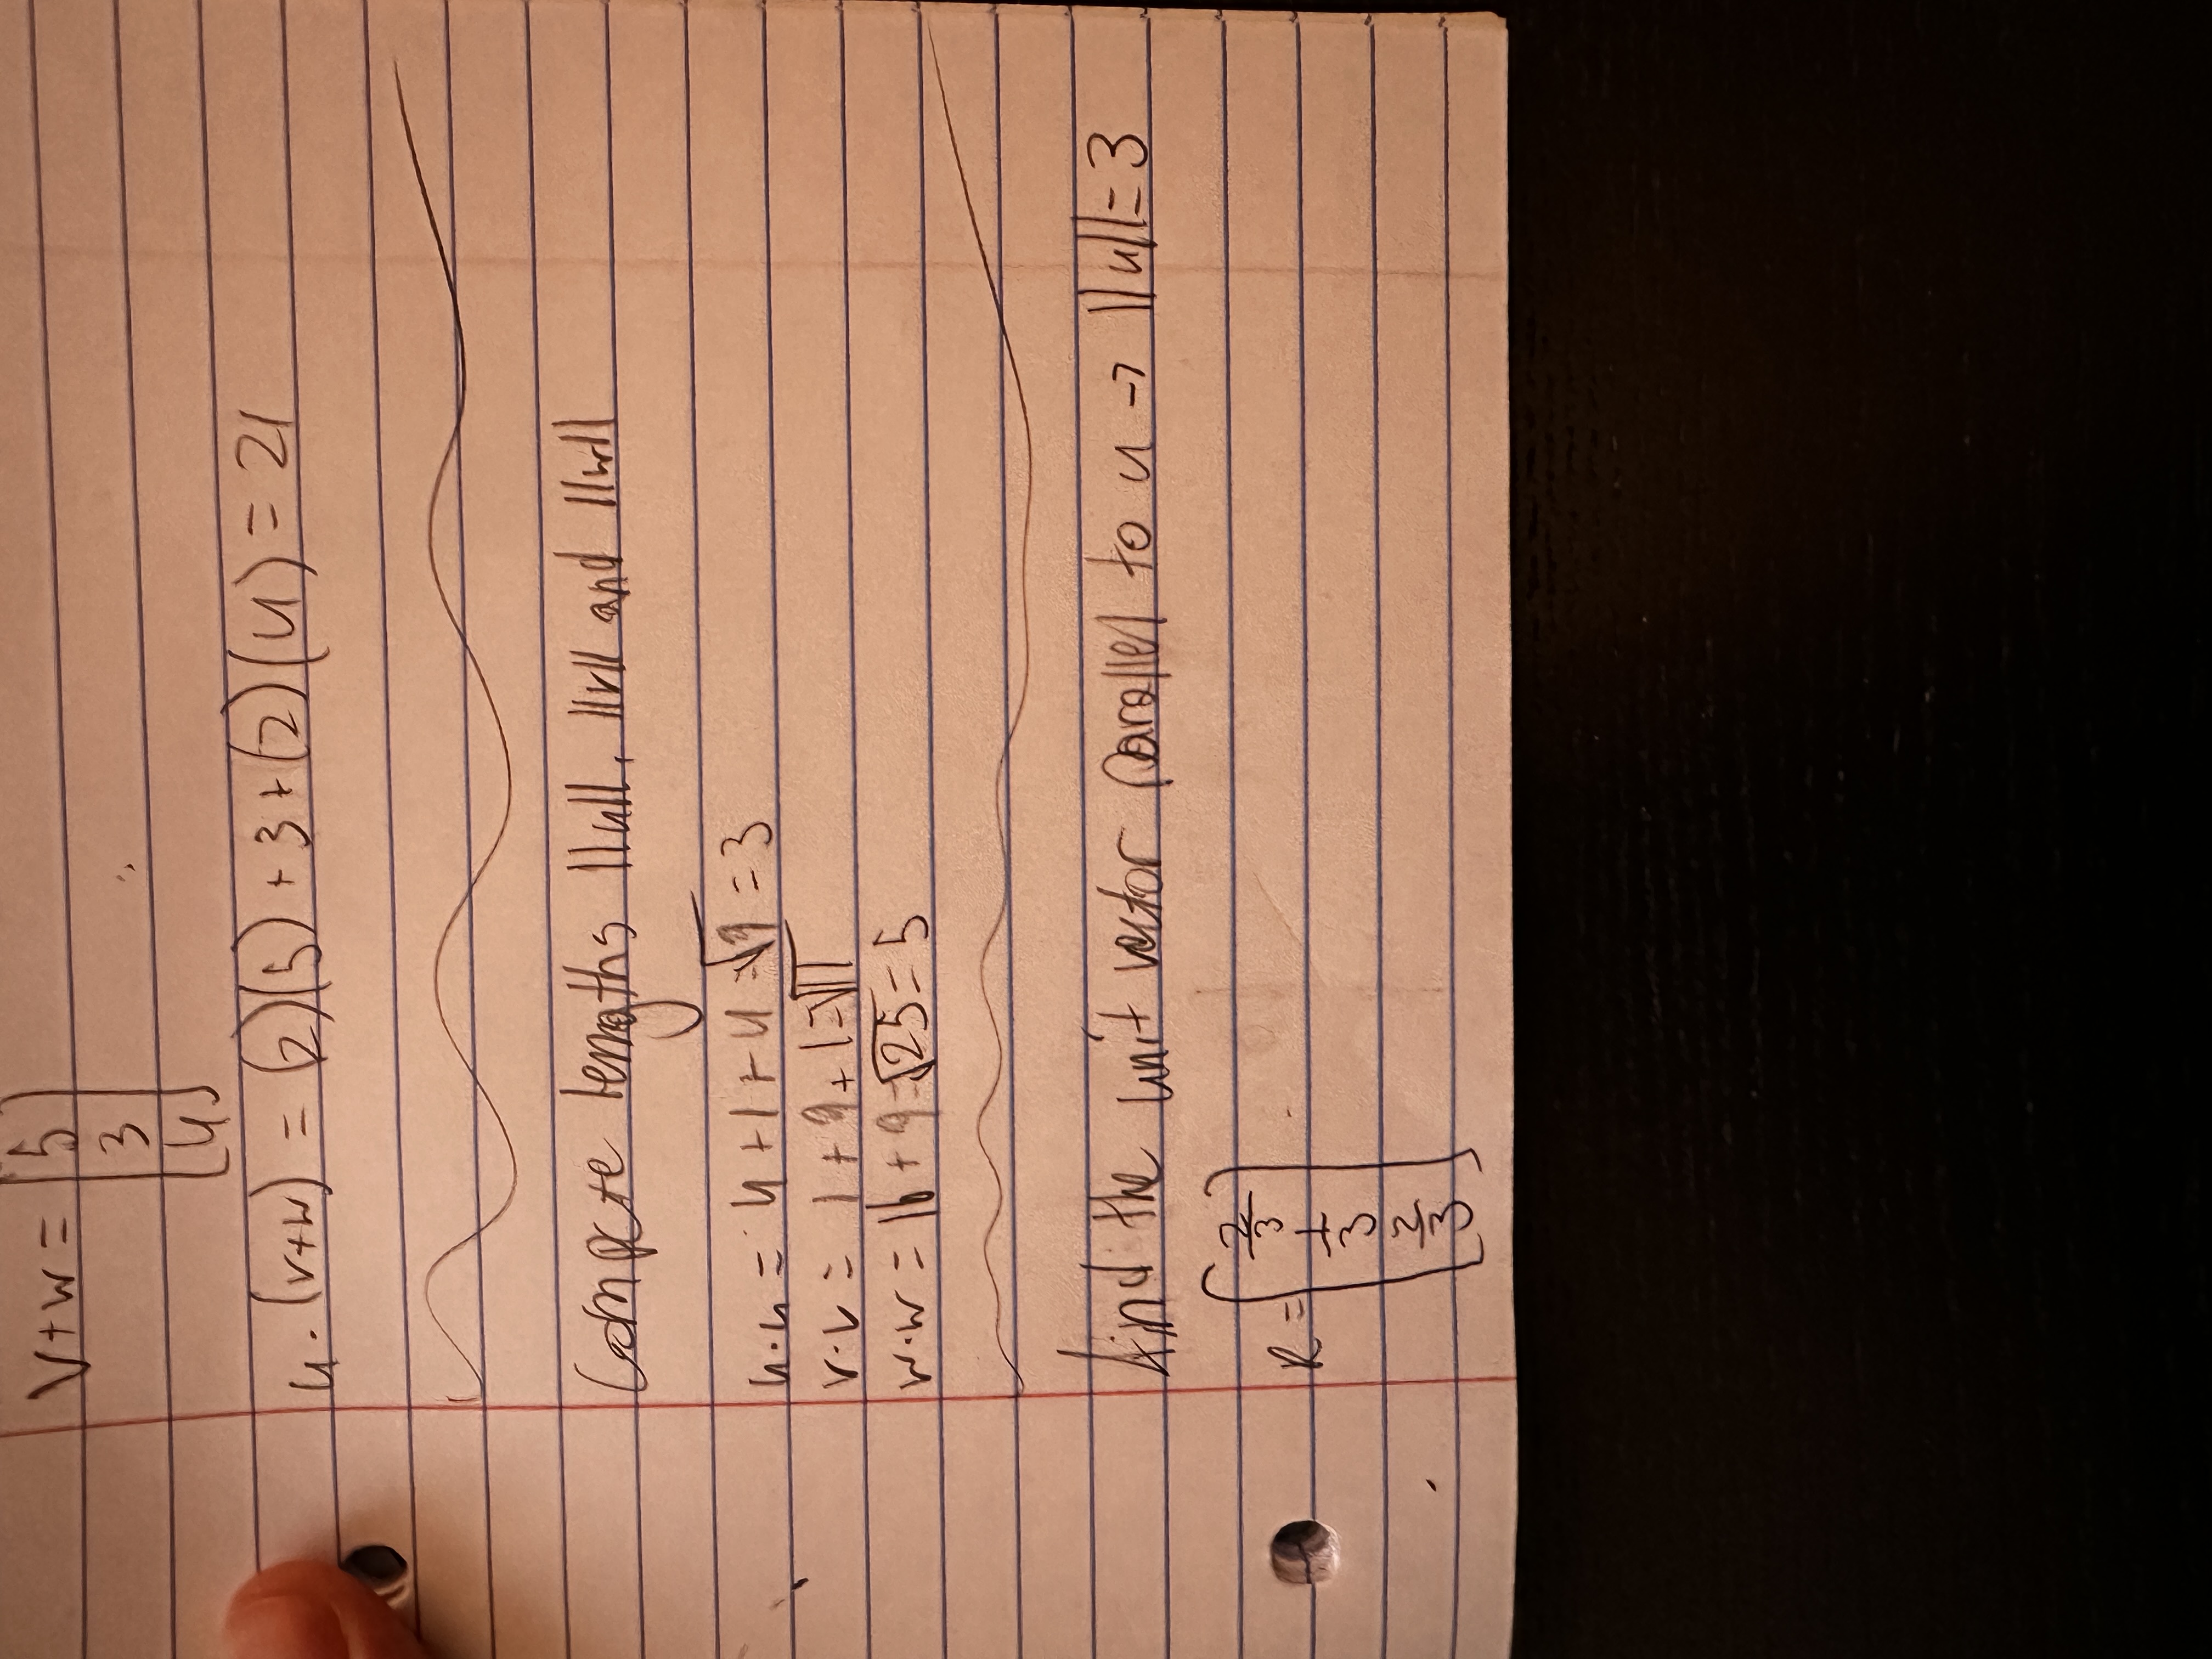 V+w = [5
3
4]
u·(v+w) = (2)(5)+3+(2)(4) = 21
Compute lengths ||u||, ||v|| and ||w||
u·u = 4+1+4=√9 = 3
v·v = 1+9+1=√11
w·w = 16+9=√25 = 5
find the unit vector parallel to u → ||u||=3
R = [2/3
1/3
2/3]